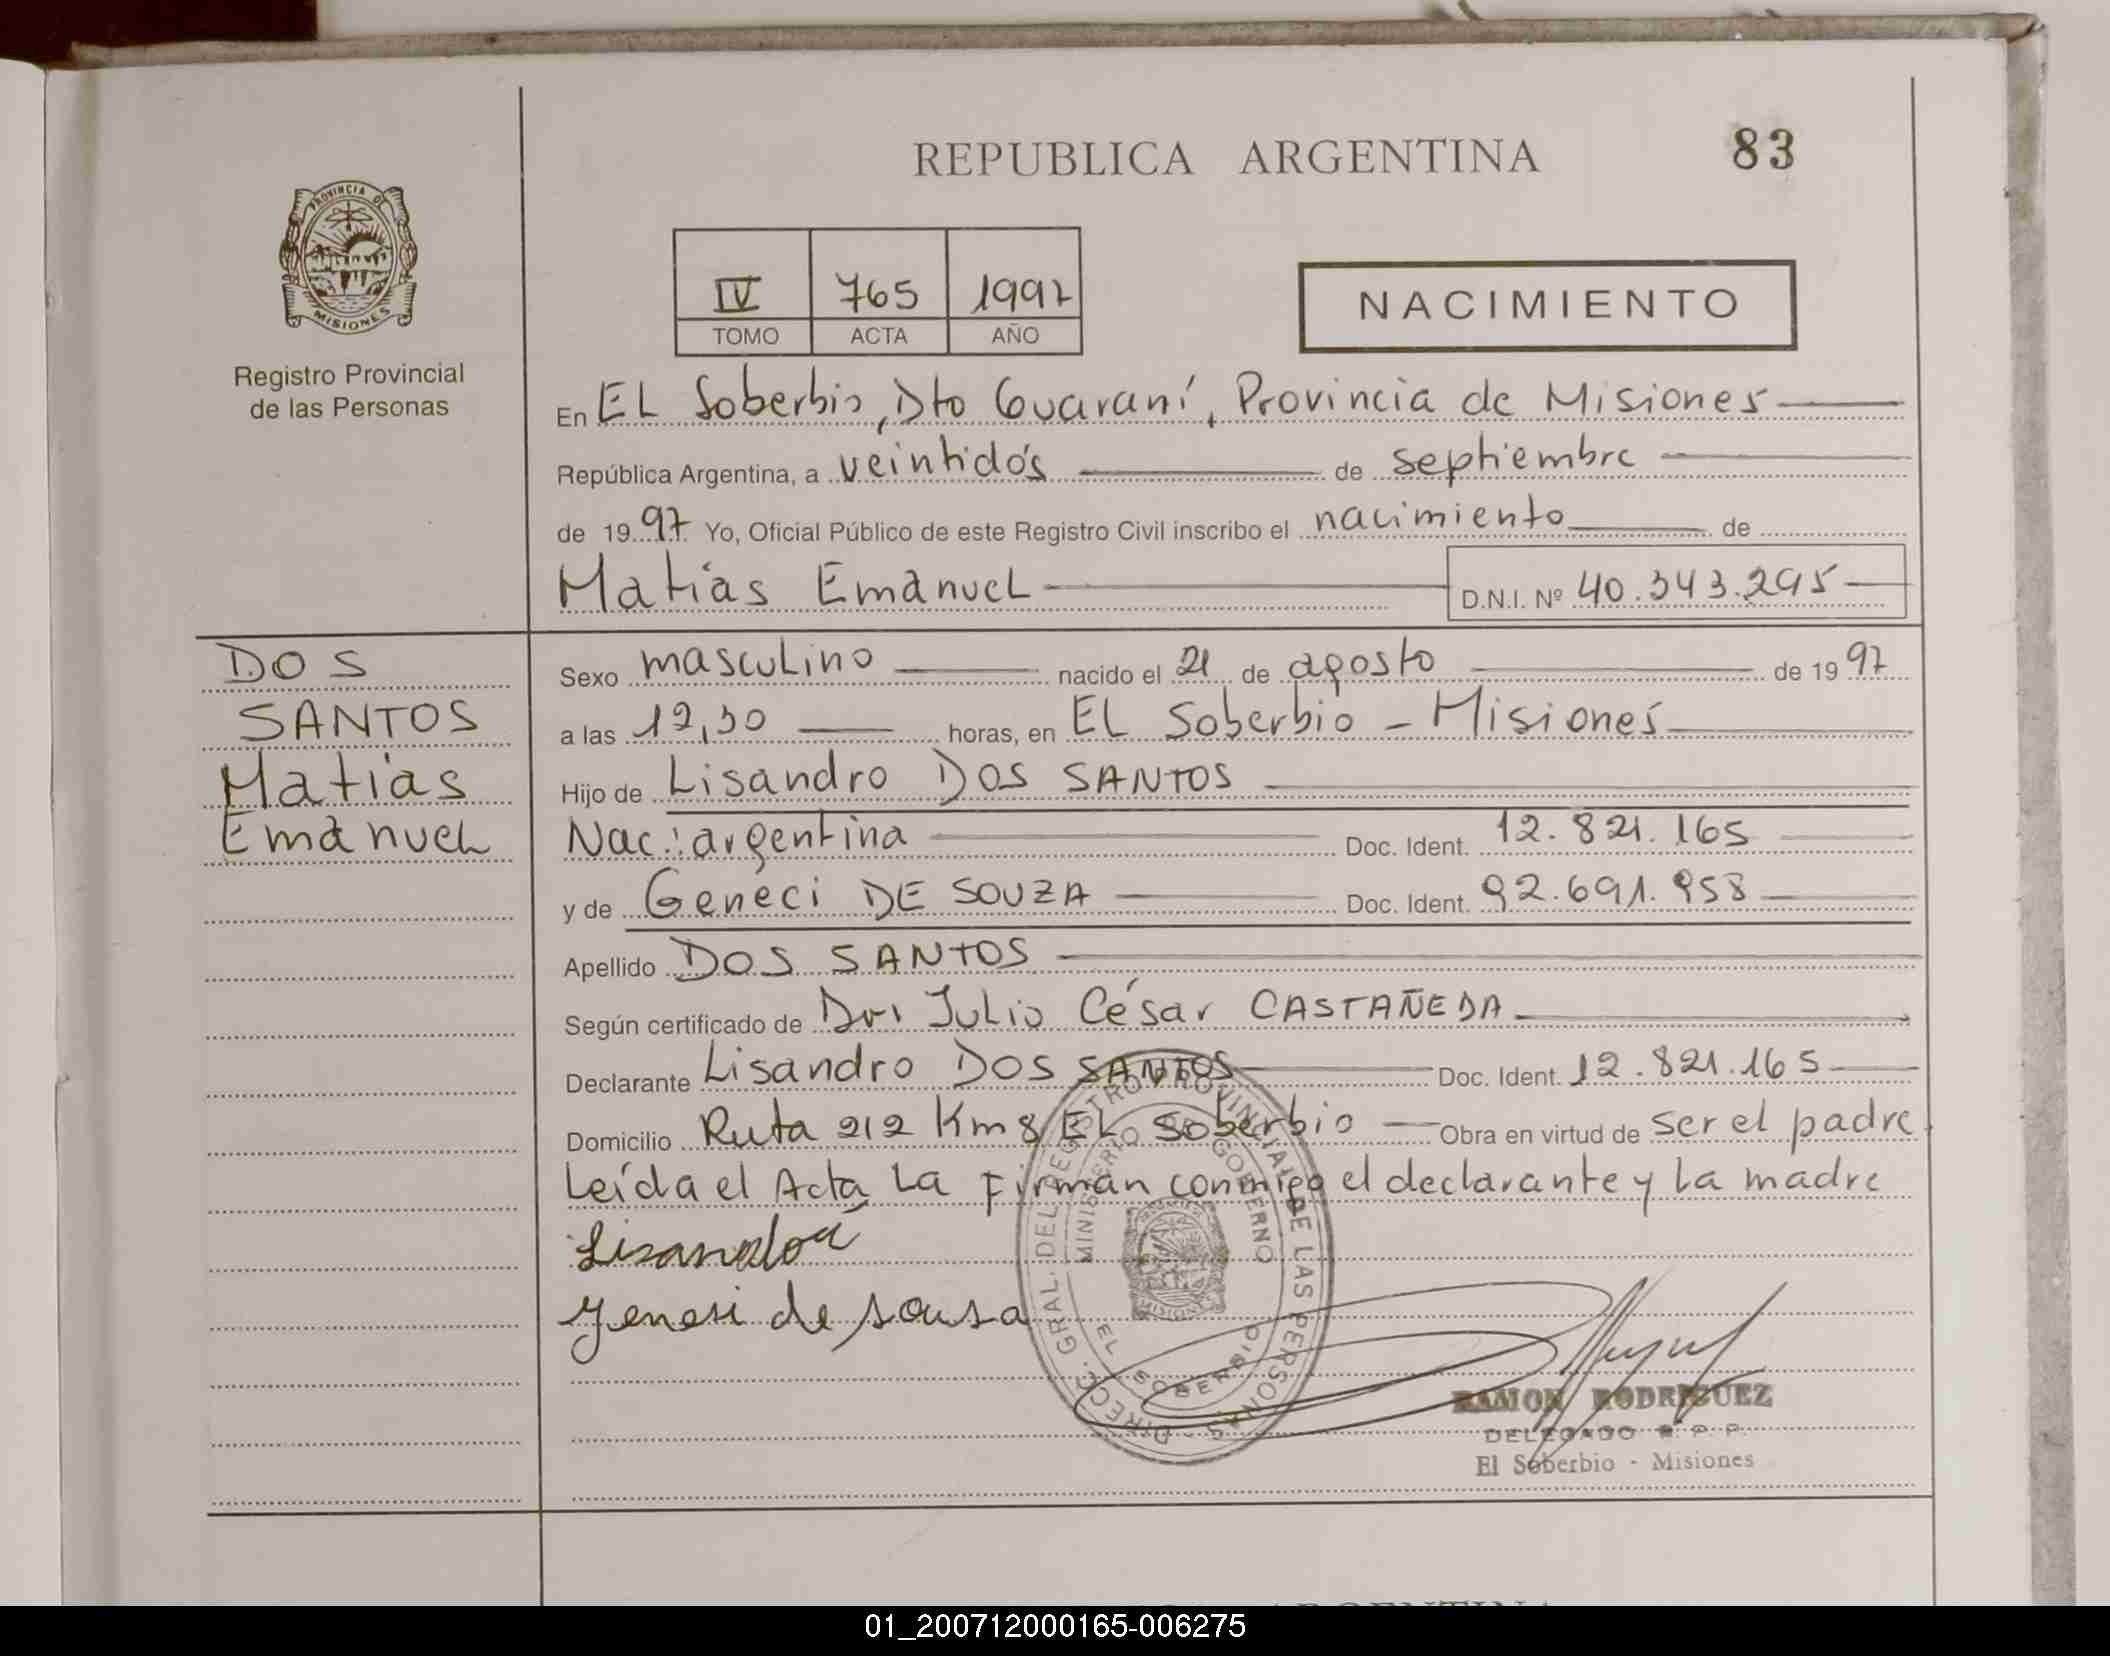 REPUBLICA ARGENTINA
83
PROVINCIA DE
MISIONES
Registro Provincial
de las Personas
IV 765 1997
TOMO ACTA AÑO
NACIMIENTO
En EL Soberbio, Dto Guaraní, Provincia de Misiones
República Argentina, a veintidós de septiembre
de 1997 Yo, Oficial Público de este Registro Civil inscribo el nacimiento de
Matías Emanuel D.N.I. Nº 40.343.295
DOS
SANTOS
Matías
Emanuel
Sexo masculino nacido el 21 de agosto de 1997
a las 12,30 horas, en EL Soberbio - Misiones
Hijo de Lisandro DOS SANTOS
Nac: argentina Doc. Ident. 12.821.165
y de Geneci DE SOUZA Doc. Ident. 92.691.958
Apellido DOS SANTOS
Según certificado de Dr. Julio César CASTAÑEDA
Declarante Lisandro DOS SANTOS Doc. Ident. 12.821.165
Domicilio Ruta 212 Km 8 EL Soberbio Obra en virtud de ser el padre
Leída el Acta La Firman conmigo el declarante y La madre
yenesi de sousa
DIRECC. GRAL. DEL REGISTRO PROVINCIAL DE LAS PERSONAS
MINISTERIO DE GOBIERNO
MISIONES
EL SOBERBIO
RAMON RODRIGUEZ
DELEGADO R. P. P.
El Soberbio - Misiones
01_200712000165-006275